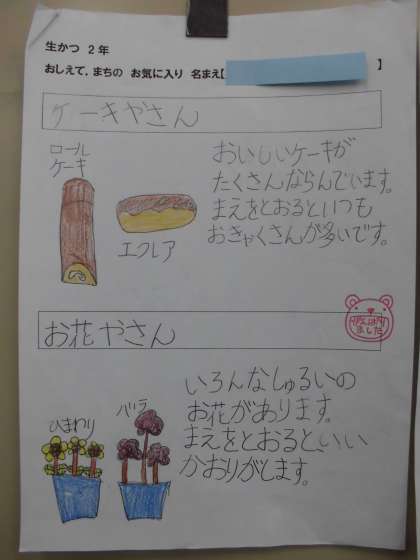 生かつ 2年
おしえて、まちの お気に入り 名まえ【 】
ケーキやさん
ロール
ケーキ
エクレア
おいしいケーキが
たくさんならんでいます。
まえをとおるといつも
おきゃくさんが多いです。
がんばり
ました
お花やさん
ひまわり
バラ
いろんなしゅるいの
お花があります。
まえをとおると、いい
かおりがします。